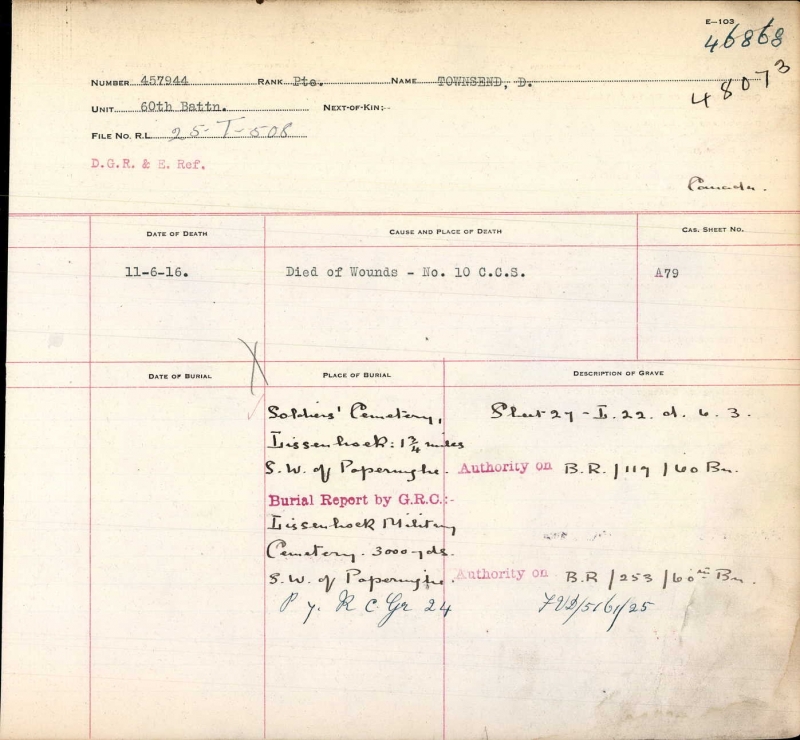 E-103
46868
48073
NUMBER 457944 RANK Pte. NAME TOWNSEND, D.
UNIT 60th Battn. NEXT-OF-KIN:-
FILE NO. R.L. 25-T-508
D.G.R. & E. Ref.
Canada.
DATE OF DEATH CAUSE AND PLACE OF DEATH CAS. SHEET NO.
11-6-16. Died of Wounds - No. 10 C.C.S. A79
DATE OF BURIAL PLACE OF BURIAL DESCRIPTION OF GRAVE
Soldiers' Cemetery, Sheet 27 - L. 22. d. 6. 3.
Lissenhoek: 1 3/4 miles
S.W. of Poperinghe. Authority on B.R. /119 /60 Bn.
Burial Report by G.R.C.:-
Lissenhoek Military
Cemetery. 3000 yds.
S.W. of Poperinghe. Authority on B.R /253 /60th Bn.
R C Gr 24